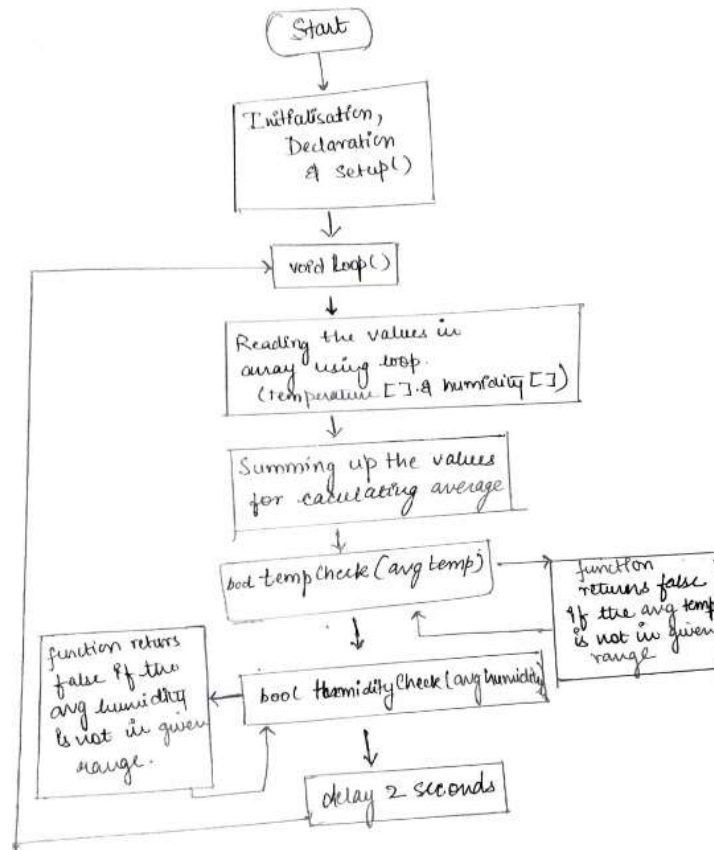 Start
Initialisation,
Declaration
& setup()
void loop()
Reading the values in
array using loop.
(temperature [] & humidity [])
Summing up the values
for calculating average
bool tempCheck (avg temp)
function
returns false
if the avg temp
is not in given
range
bool HumidityCheck (avg humidity)
function returs
false if the
avg humidity
is not in given
range.
delay 2 seconds